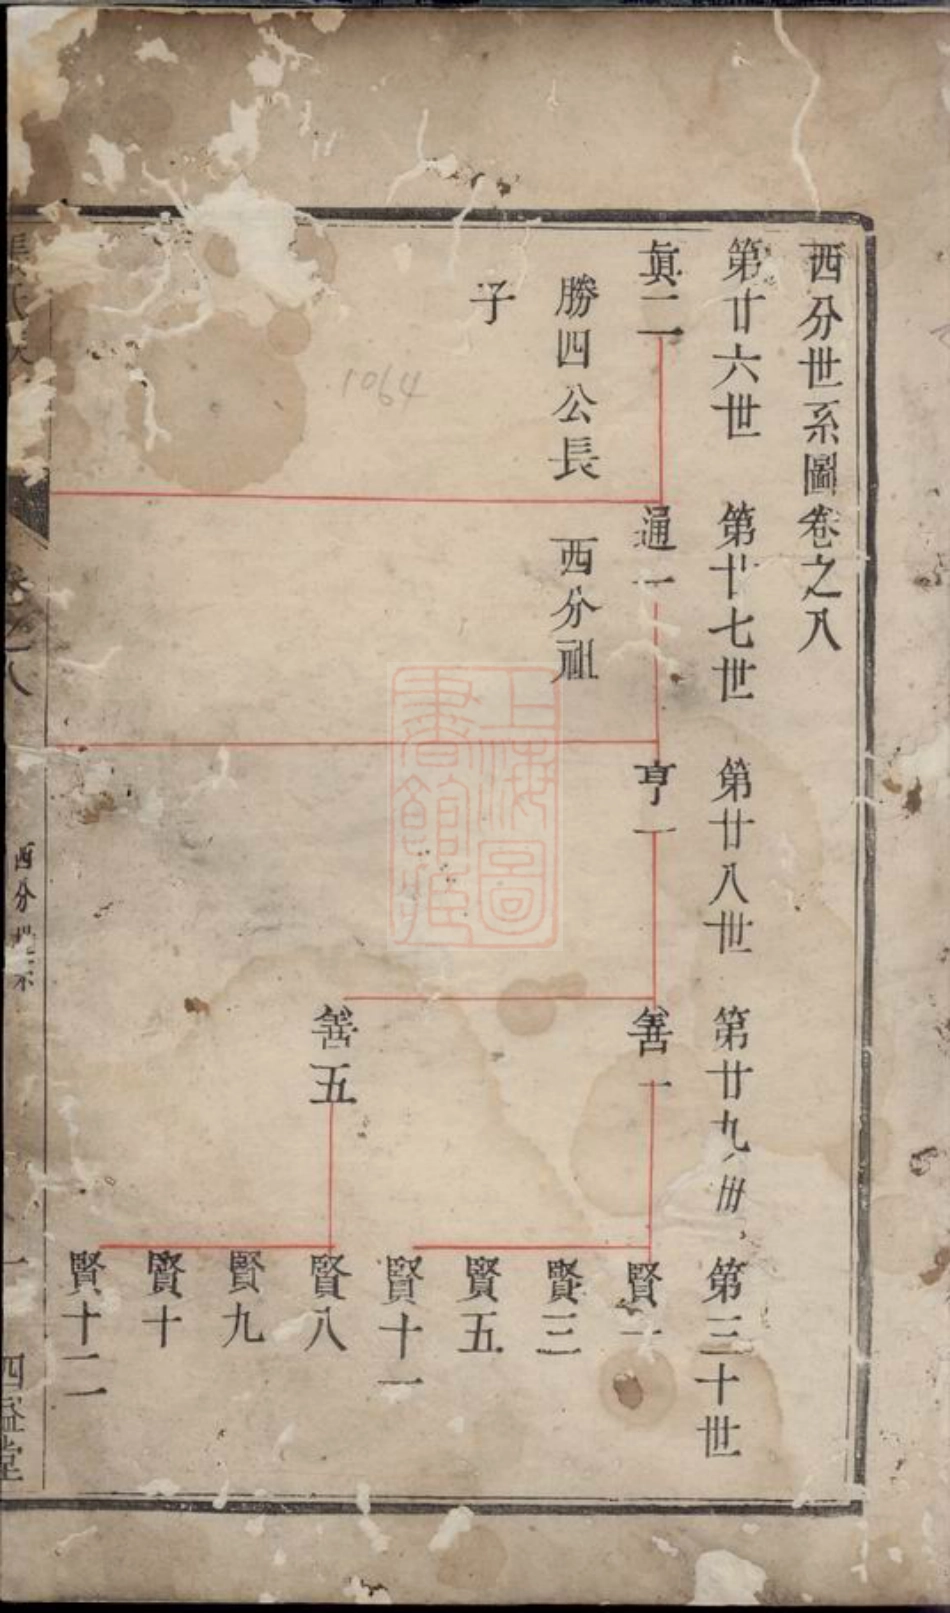 西分世系圖卷之八
第廿六世
第廿七世
第廿八世
第廿九世
第三十世
眞二
通一
亨一
善一
賢一
勝四公長
子
西分祖
賢三
賢五
賢十一
善五
賢八
賢九
賢十
賢十二
1064
上海圖
書館藏
卷之八
西分世系
一
四益堂